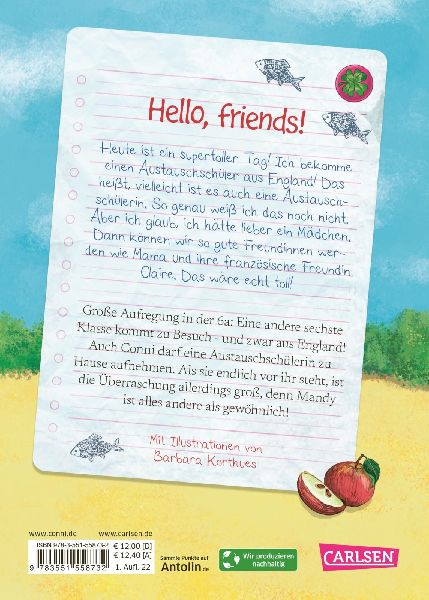 Hello, friends!
Heute ist ein supertoller Tag! Ich bekomme
einen Austauschschüler aus England! Das
heißt, vielleicht ist es auch eine Austausch-
schülerin. So genau weiß ich das noch nicht.
Aber ich glaub, ich hätte lieber ein Mädchen.
Dann können wir so gute Freundinnen wer-
den wie Mama und ihre französische Freundin
Claire. Das wäre echt toll!
Große Aufregung in der 6a: Eine andere sechste
Klasse kommt zu Besuch – und zwar aus England!
Auch Conni darf eine Austauschschülerin zu
Hause aufnehmen. Als sie endlich vor ihr steht, ist
die Überraschung allerdings groß, denn Mandy
ist alles andere als gewöhnlich!
Mit Illustrationen von
Barbara Korthues
www.conni.de www.carlsen.de
ISBN 978-3-551-55873-2
9 783551 558732
€ 12,00 [D]
€ 12,40 [A]
1. Aufl. 22
Sammle Punkte auf
Antolin.de
Wir produzieren
nachhaltig
CARLSEN